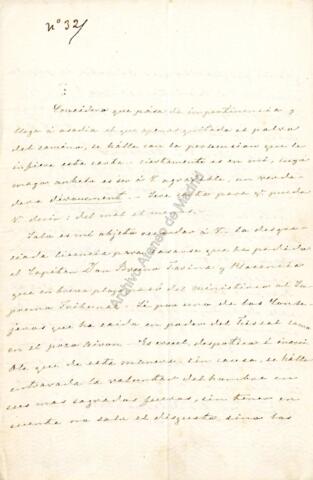 nº 32/
Considero que pasa de impertinencia y
llega á osadia el que apenas quitado el polvo
del camino, se halle con la persecucion que le
inflige esta carta. Ciertamente es en mi, cuyo
mayor anhelo es ser á V. agradable, un verda-
dero
esta para q. pueda
V. decir: del mal el menos.
Solo es mi objeto recordar á V. la desgra-
ciada licencia para casarse que ha pedido
el Capitan Don y Plasencia
que en hora pasó del ministerio al Su-
premo Tribunal. Sé por uno de los Conse-
jeros que ha caido en poder del Fiscal como
en el pozo Airon. Es cruel, despotico é increi-
ble que de esta manera, sin causa, se halle
entravada la voluntad del hombre en
sus mas sagrados fueros, sin tener en
cuenta no solo el disgusto, sino los
Archivo Ateneo de Madrid